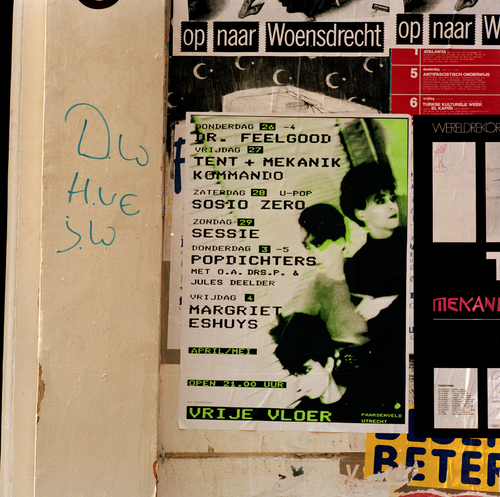 op naar Woensdrecht
op naar W
1 ATALANTA
5 ANTIFASCISTISCH ONDERWIJS
6 TURKSE KULTURELE WEEK
WERELDREKOR
D.W
H.VE
J.W
DONDERDAG 26 -4
DR. FEELGOOD
VRIJDAG 27
TENT + MEKANIK
KOMMANDO
ZATERDAG 28 U-POP
SOSIO ZERO
ZONDAG 29
SESSIE
DONDERDAG 3 -5
POPDICHTERS
MET O.A. DRS.P. &
JULES DEELDER
VRIJDAG 4
MARGRIET
ESHUYS
APRIL/MEI
OPEN 21.00 UUR
VRIJE VLOER
PAARDENVELD
UTRECHT
MEKANI
BETER